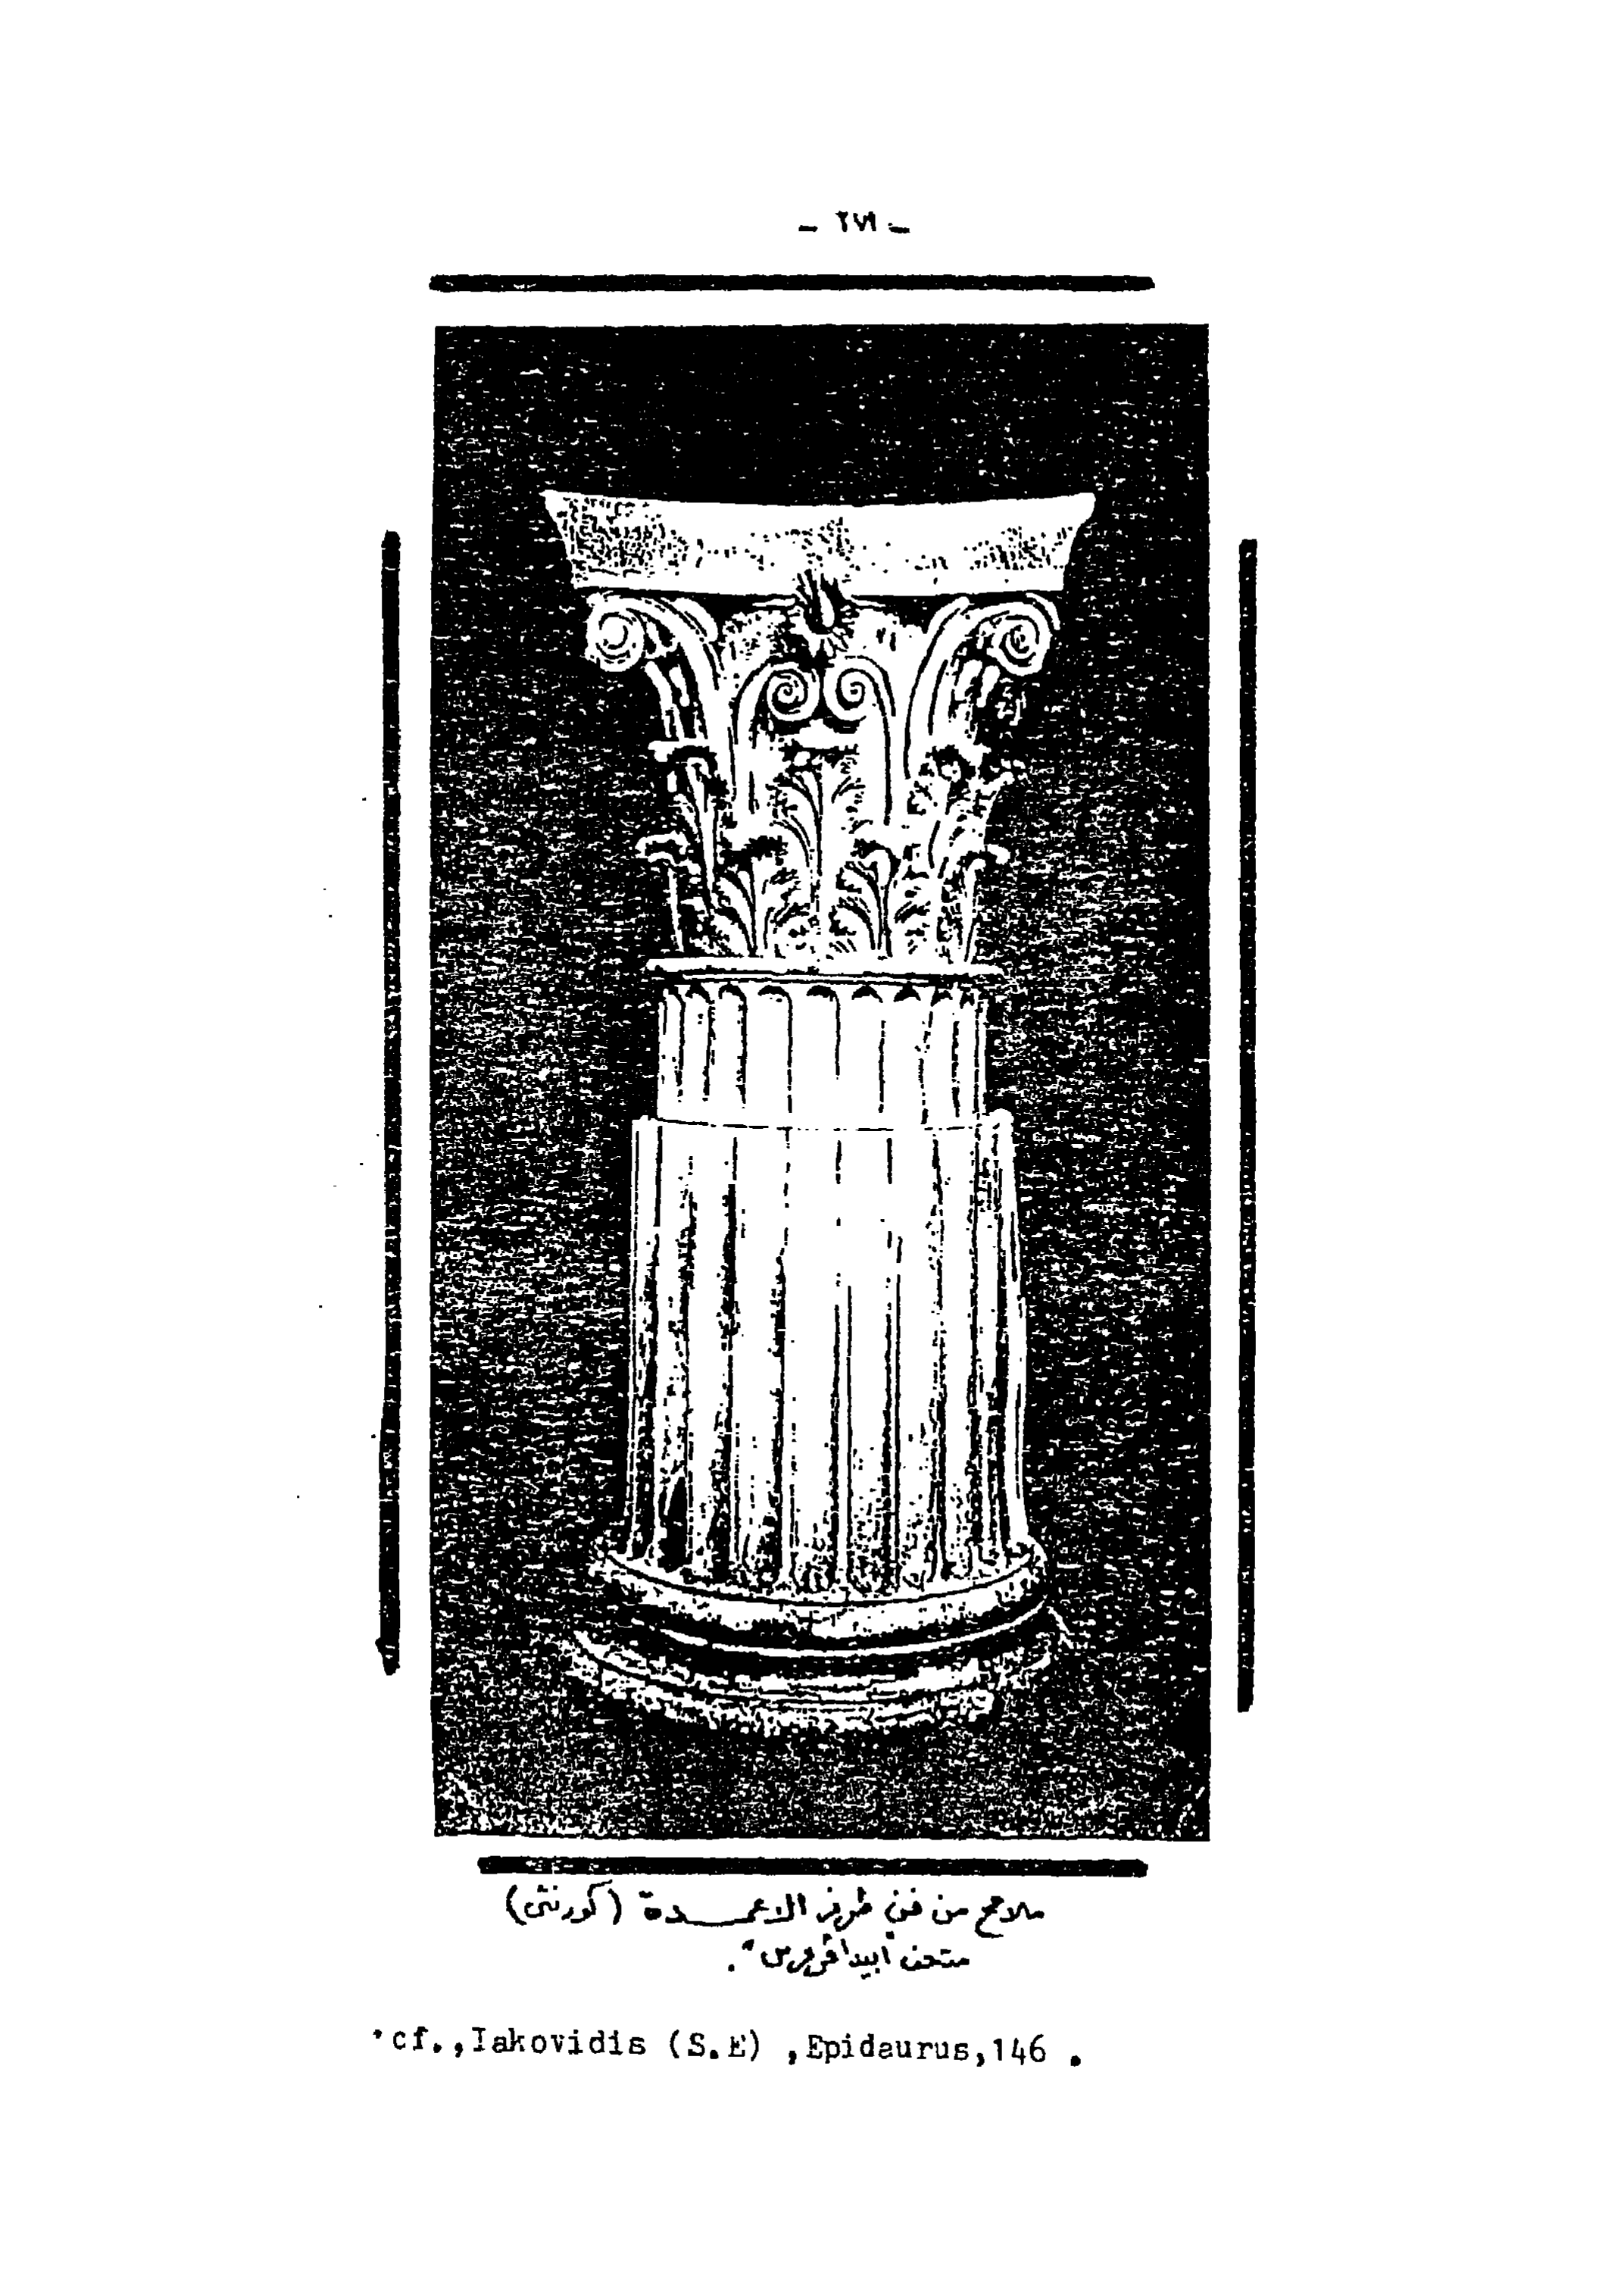 - ٢٧١ -
ملامح من فن طرز الاعمـــدة (كورنثى)
متحف "ابيداڤروس".
cf.,Iakovidis (S.E) ,Epidaurus,146 .